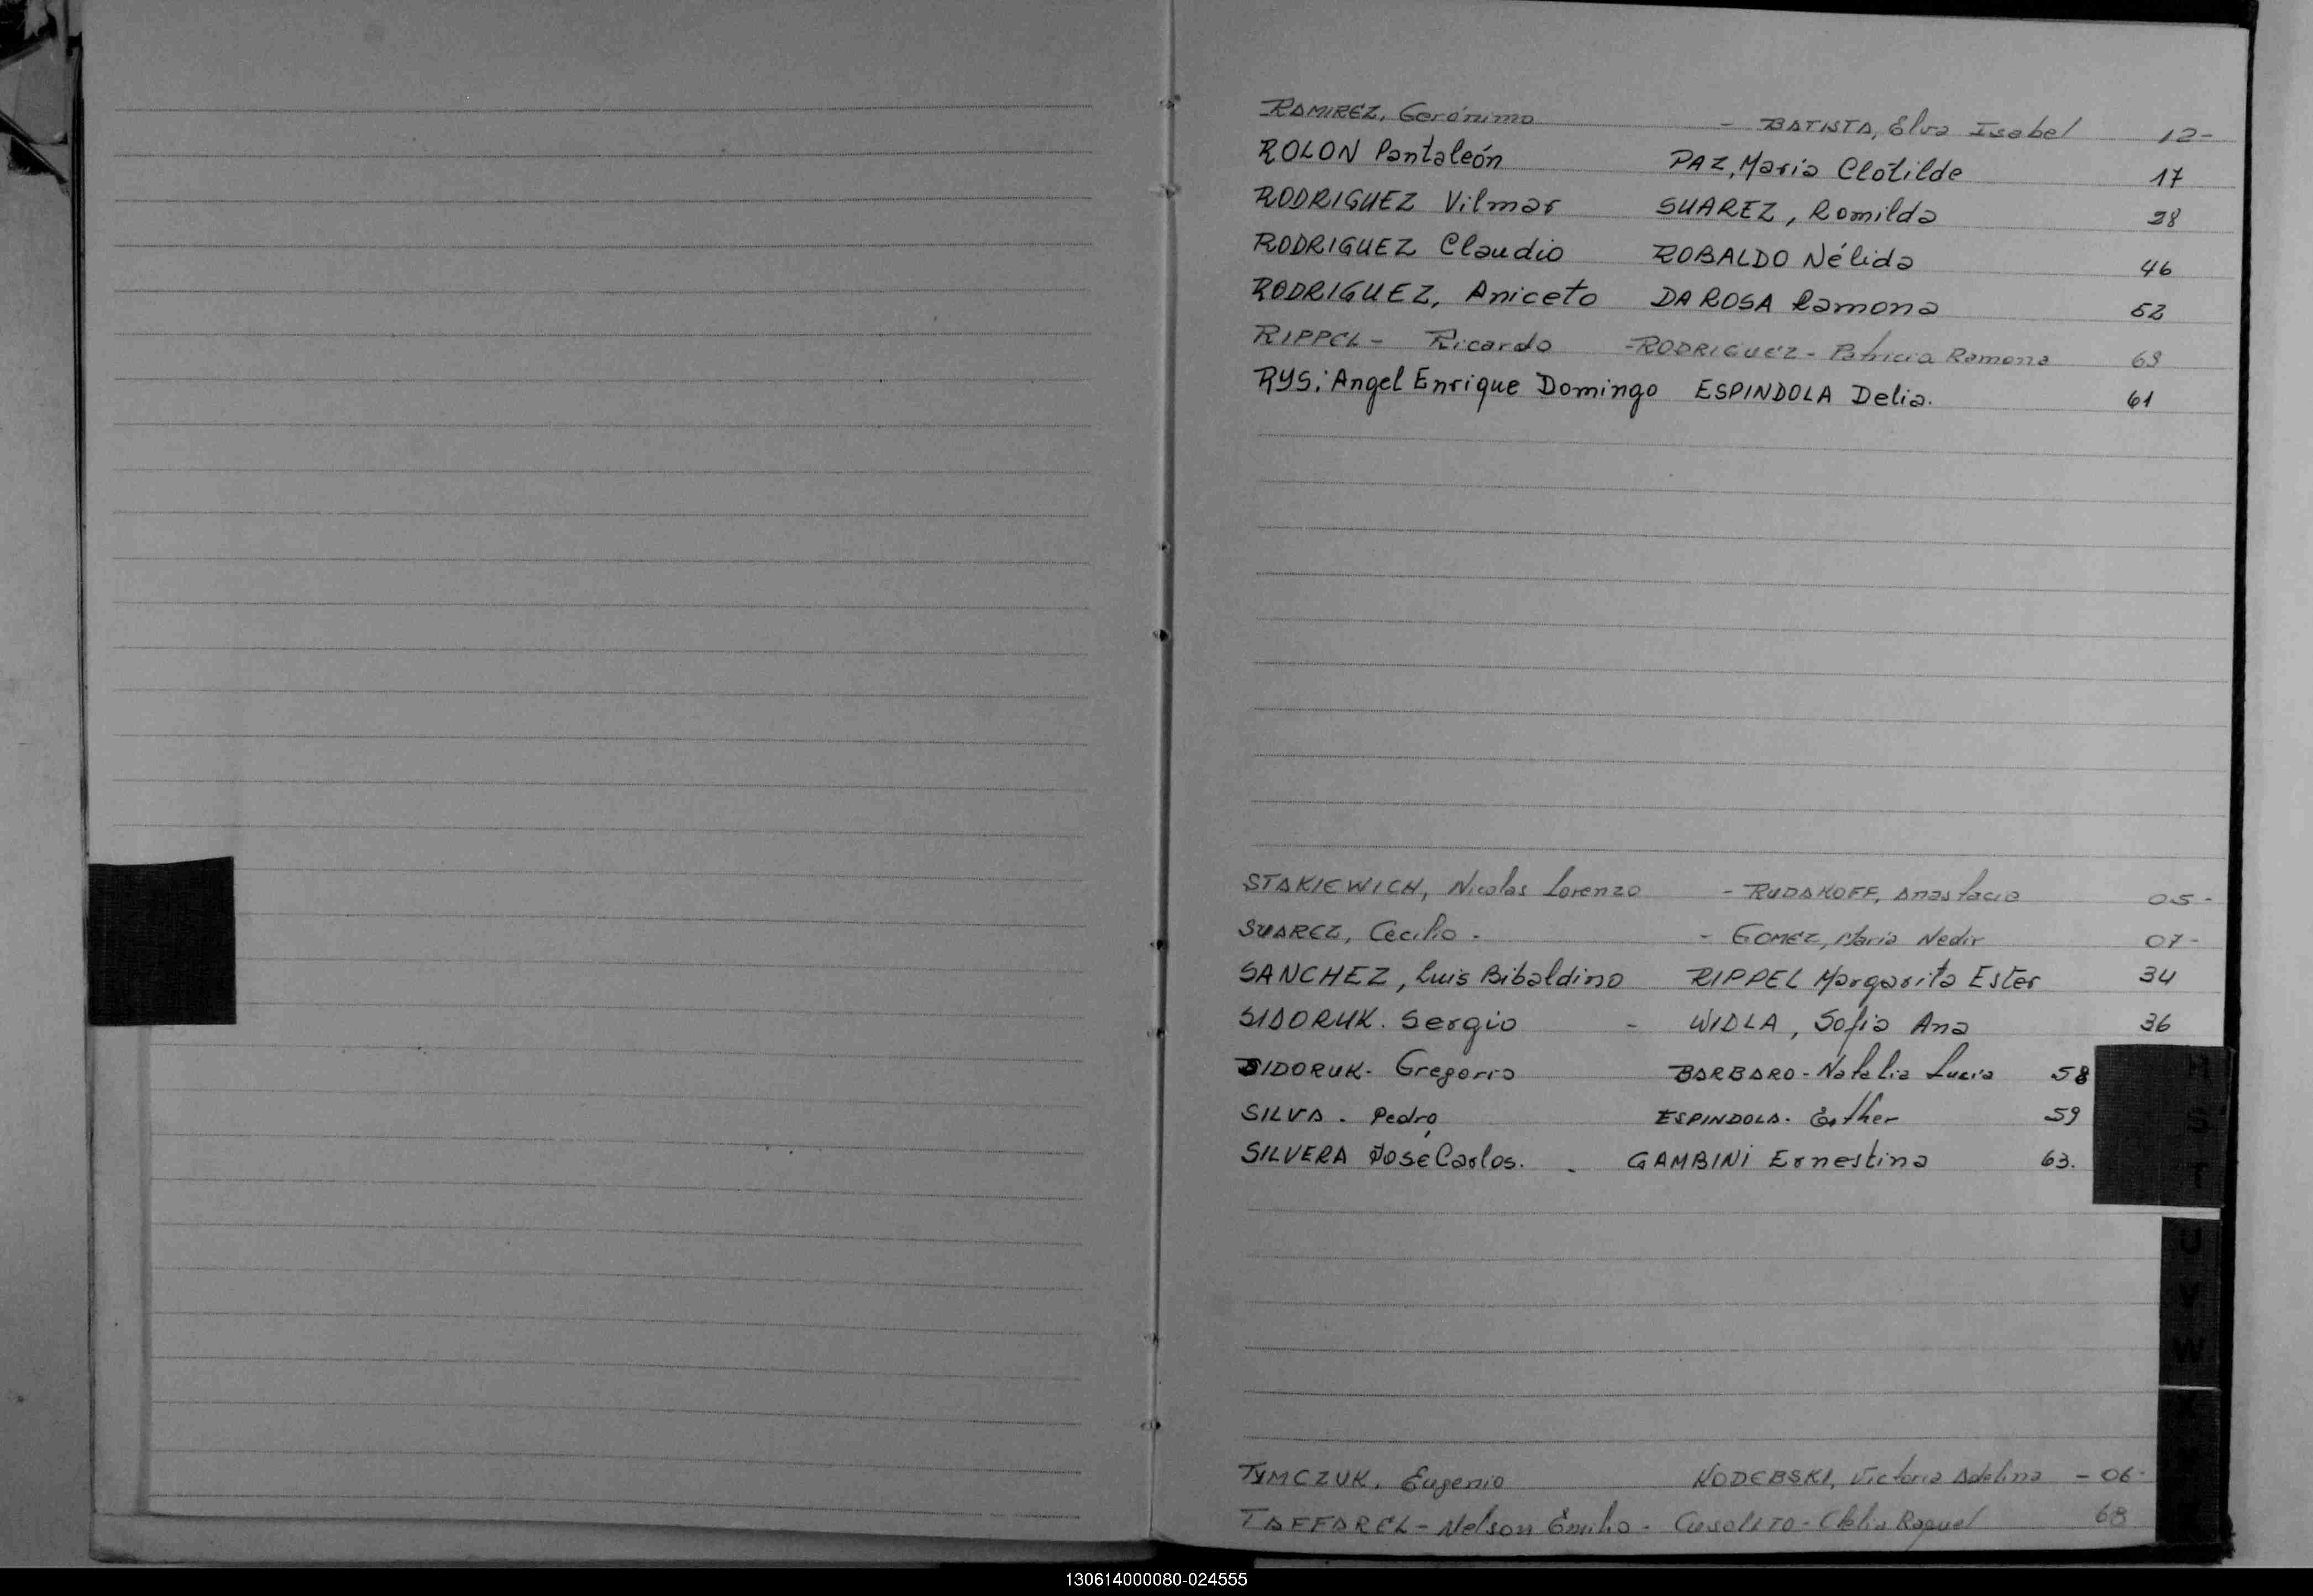 RAMIREZ, Gerónimo - BATISTA, Elva Isabel 12-
ROLON Pantaleón PAZ, María Clotilde 17
RODRIGUEZ Vilmar SUAREZ, Romilda 28
RODRIGUEZ Claudio ROBALDO Nélida 46
RODRIGUEZ, Aniceto DA ROSA Ramona 52
RIPPEL - Ricardo - RODRIGUEZ - Patricia Ramona 69
RYS: Angel Enrique Domingo ESPINDOLA Delia. 61
STAKIEWICH, Nicolas Lorenzo - RUDAKOFF, Anastacia 05-
SUAREZ, Cecilio. - GOMEZ, María Nedir 07-
SANCHEZ, Luis Bibaldino RIPPEL Margarita Ester 34
SIDORUK. Sergio - WIDLA, Sofia Ana 36
SIDORUK. Gregorio BARBARO - Natalia Lucia 58
M
SILVA. Pedro ESPINDOLA. Esther 59
S
SILVERA José Carlos. - GAMBINI Ernestina 63.
T
U
V
W
TYMCZUK, Eugenio KODEBSKI, Victoria Adelina - 06-
TAFFAREL - Nelson Emilio - Clelia Raquel 68
130614000080-024555